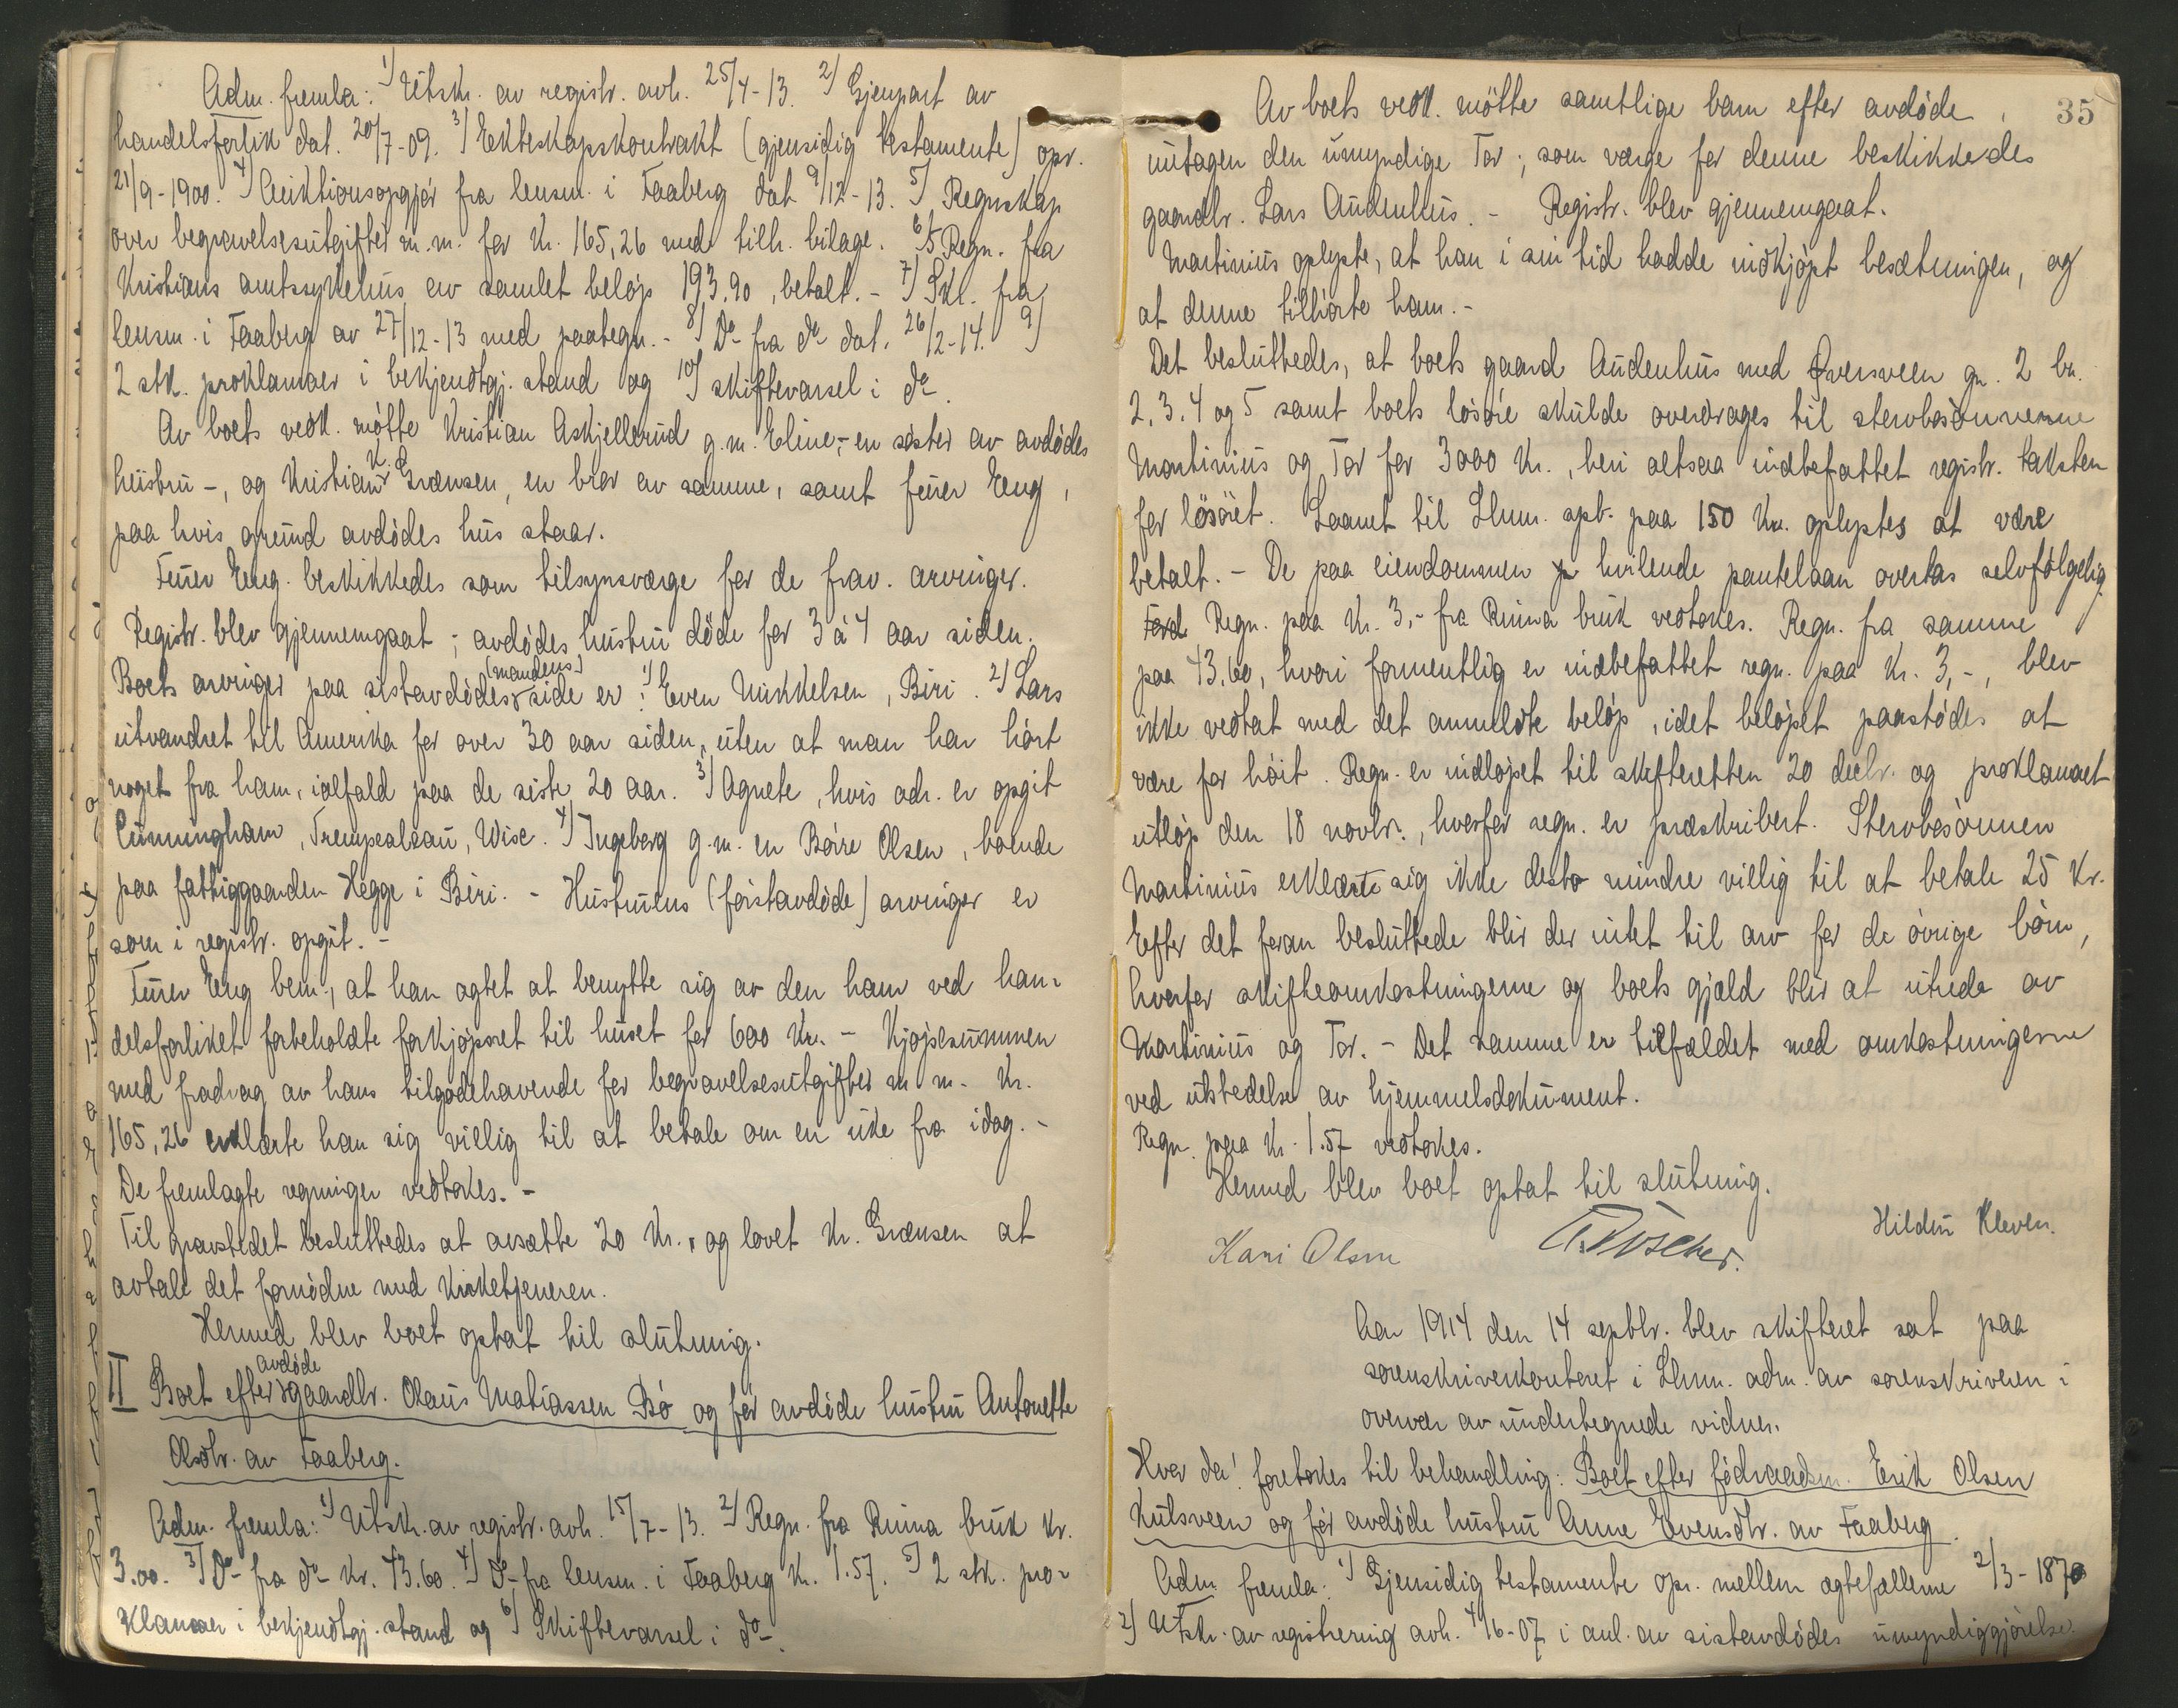 Adm. fremla: 1) Utskr. av registr. avh. 25/4-13. 2) Gjenpart av
handelsforlik dat. 20/7-09. 3) Ekteskapskontrakt (gjensidig testamente) opr.
21/9-1900. 4) Auktionsopgjør fra lensm. i Faaberg dat 9/12-13. 5) Regnskap
over begravelsesutgifter m.m. for Kr. 165,26 med tilh. bilage. 6) 5 Regn. fra
Kristians amtssykehus av samlet beløp 193.90, betalt. - 7) Skr. fra
lensm. i Faaberg av 27/12-13 med paategn. - 8) Do fra do dat. 26/2-14. 9)
2 stk. proklamaer i bekjendtgj. stand og 10) skiftevarsel i do.
Av boets vedk. møtte Kristian Askjellerud g.m. Eline, - en søster av avdødes
hustru -, og Kristian K. Grænsen, en bror av samme, samt furer Eng,
paa hvis grund avdødes hus staar.
Furer Eng. beskikkedes som tilsynsværge for de frav. arvinger.
Registr. blev gjennemgaat; avdødes hustru døde for 3 à 4 aar siden.
Boets arvinger paa sistavdødes (mandens) side er: 1) Even Mikkelsen, Biri. 2) Lars
utvandret til Amerika for over 30 aar siden, uten at man har hørt
noget fra ham, ialfald paa de siste 20 aar. 3) Agnete, hvis adr. er opgit
Cunningham, Trempealeau, Wisc. 4) Ingeborg g.m. en Børre Olsen, boende
paa fattiggaarden Hegge i Biri. - Hustruens (førstavdøde) arvinger er
som i registr. opgit. -
Furer Eng bem., at han agtet at benytte sig av den ham ved han-
delsforliket forbeholdte forkjøpsret til huset for 600 Kr. - Kjøpesummen
med fradrag av hans tilgodehavende for begravelsesutgifter m m. Kr.
165,26 erklærte han sig villig til at betale om en uke fra idag. -
De fremlagte regninger vedtokes. -
Til gravstedet besluttedes at avsætte 20 Kr., og lovet Kr. Grænsen at
avtale det fornødne med kirketjeneren.
Hermed blev boet optat til slutning.
II Boet efter avdøde gaardbr. Olaus Matiassen Bø og før avdøde hustru Antonette
Olsdtr. av Faaberg.
Adm. fremla: 1) Utskr. av registr. avh. 15/7-13. 2) Regn. fra Ruina bruk Kr.
3.00. 3) Do- fra do- Kr. 43.60. 4) Do- fra lensm. i Faaberg Kr. 1.57. 5) 2 stk. pro-
klamaer i bekjendtgj. stand og 6) Skiftevarsel i do-.
35
Av boets vedk. møtte samtlige barn efter avdøde,
undtagen den umyndige Tor; som værge for denne beskikkedes
gaardbr. Lars Audenhus. - Registr. blev gjennemgaat.
Martinius oplyste, at han i sin tid hadde indkjøpt besætningen, og
at denne tilhørte ham. -
Det besluttedes, at boets gaard Audenhus med Øversveen gn. 2 bn.
2, 3, 4 og 5 samt boets løsøre skulde overdrages til stervbosønnerne
Martinius og Tor for 3000 Kr., heri altsaa indbefattet registr. taksten
for løsøret. Laanet til Lhmr. spb. paa 150 Kr. oplystes at være
betalt. - De paa eiendommen hvilende pantelaan overtas selvfølgelig.
Regn. paa Kr. 3,- fra Ruina bruk vedtokes. Regn. fra samme
paa 43,60, hvori formentlig er indbefattet regn. paa Kr. 3,-, blev
ikke vedtat med det anmeldte beløp, idet beløpet paastodes at
være for høit. Regn. er indløpet til skifteretten 20 decbr. og proklamaet
utløp den 18 novbr., hvorfor regn. er præskribert. Stervbosønnen
Martinius erklærte sig ikke desto mindre villig til at betale 25 Kr.
Efter det foran besluttede blir der intet til arv for de øvrige børn,
hvorfor skifteomkostningerne og boets gjæld blir at utrede av
Martinius og Tor. - Det samme er tilfældet med omkostningerne
ved utstedelse av hjemmelsdokument.
Regn. paa Kr. 1.57 vedtokes.
Hermed blev boet optat til slutning.
Kari Olsen
Hildur Kleven.
Aar 1914 den 14 septbr. blev skifteret sat paa
sorenskriverkontoret i Lhmr. adm. av sorenskriveren i
overvær av undertegnede vidner.
Hvor da! foretokes til behandling: Boet efter føderaadsm. Erik Olsen
Kutsveen og før avdøde hustru Anne Evensdtr. av Faaberg.
Adm. fremla: 1) Gjensidig testamente opr. mellem ægtefællerne 2/3-1870
2) Utskr. av registrering avh. 4/6-07 i anl. av sistavdødes umyndiggjørelse.